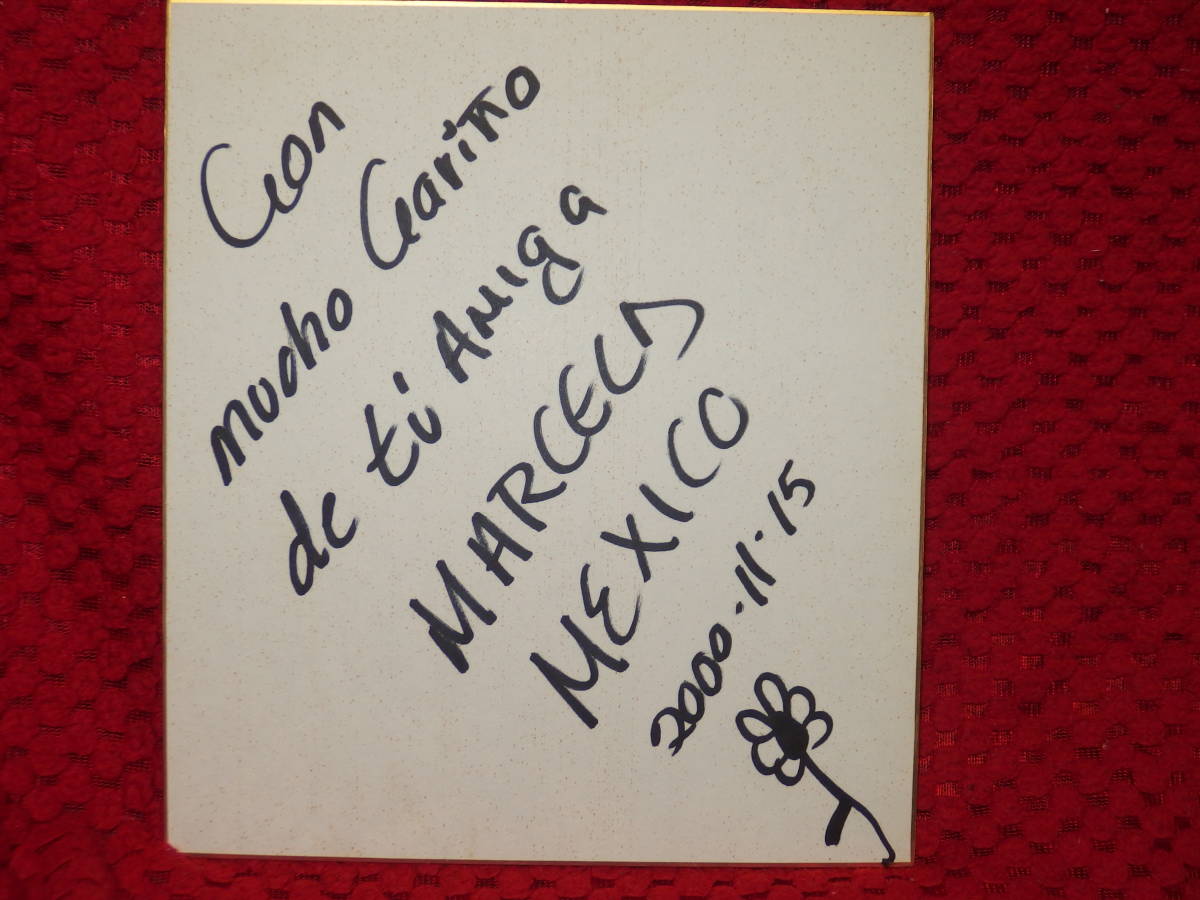 Con
mucho Cariño
de ti Amiga
MARCELA
MEXICO
2000-11-15